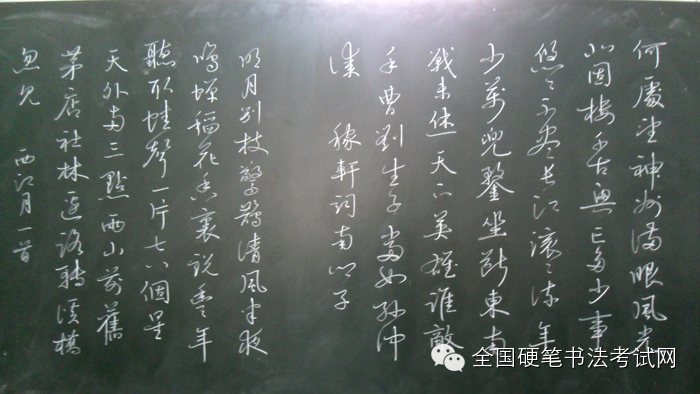 何處望神州滿眼風光
北固樓千古興亡多少事
悠〻不盡長江滾〻流年
少萬兜鍪坐斷東南
戰未休天下英雄誰敵
手曹劉生子當如孫仲
謀 稼軒詞南鄉子
明月別枝驚鵲清風半夜
鳴蟬稻花香裏說豐年
聽取蛙聲一片七八個星
天外兩三點雨山前舊
茅店社林邊路轉溪橋
忽見 西江月一首
全国硬笔书法考试网